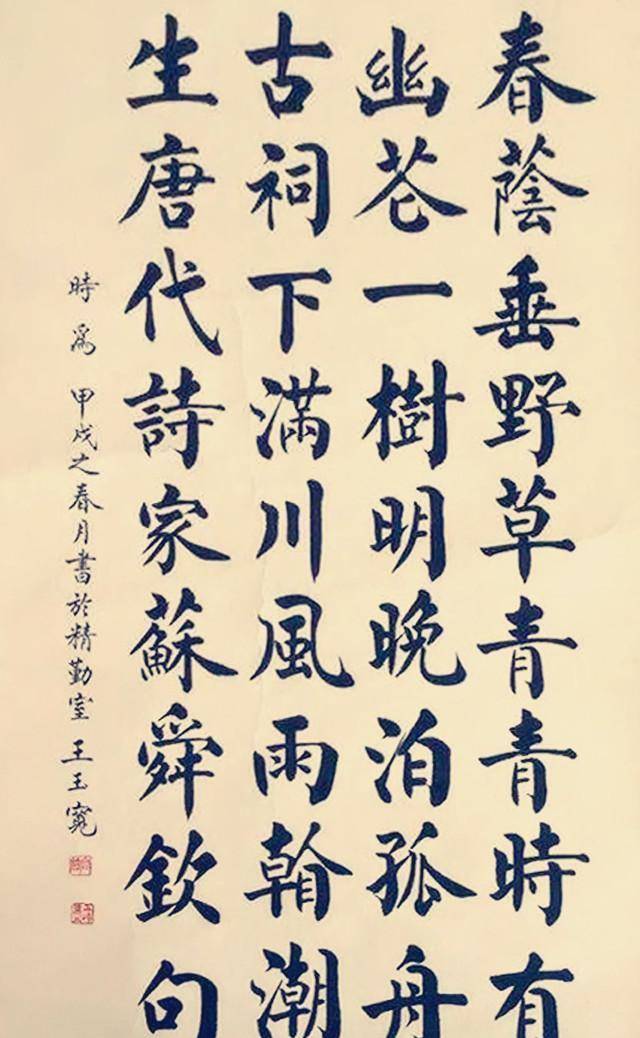 春蔭垂野草青青時有
幽花一樹明晚泊孤舟
古祠下滿川風雨看潮
生唐代詩家蘇舜欽句
時爲 甲戌之春月書於精勤室 王玉寬